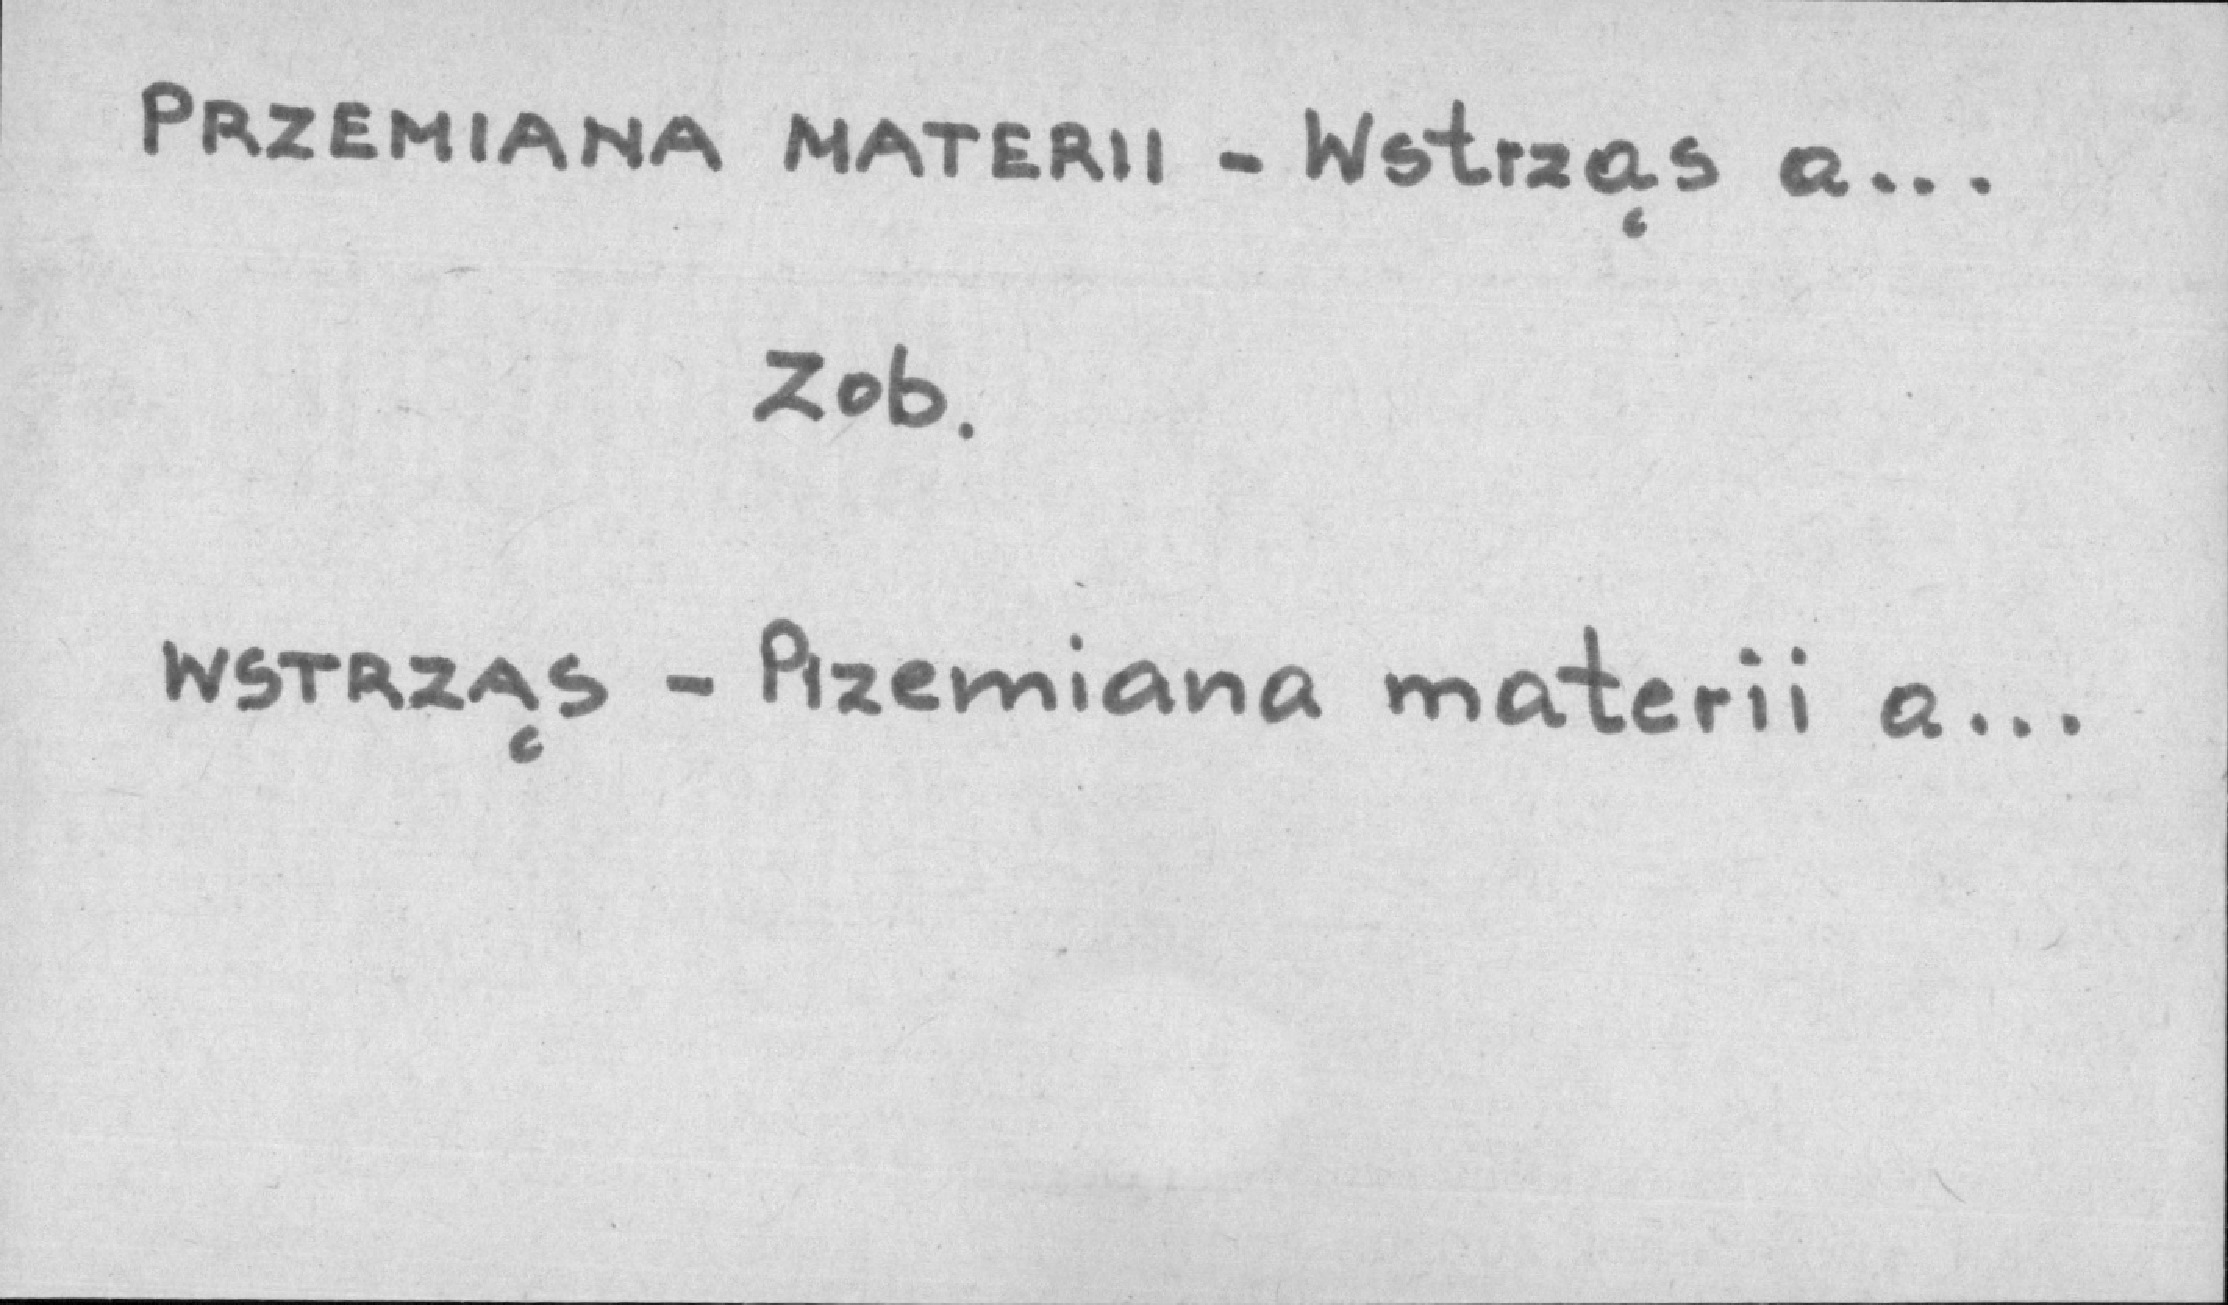 PRZEMIANA MATERII - Wstrząs a...
Zob.
WSTRZĄS - Przemiana materii a...